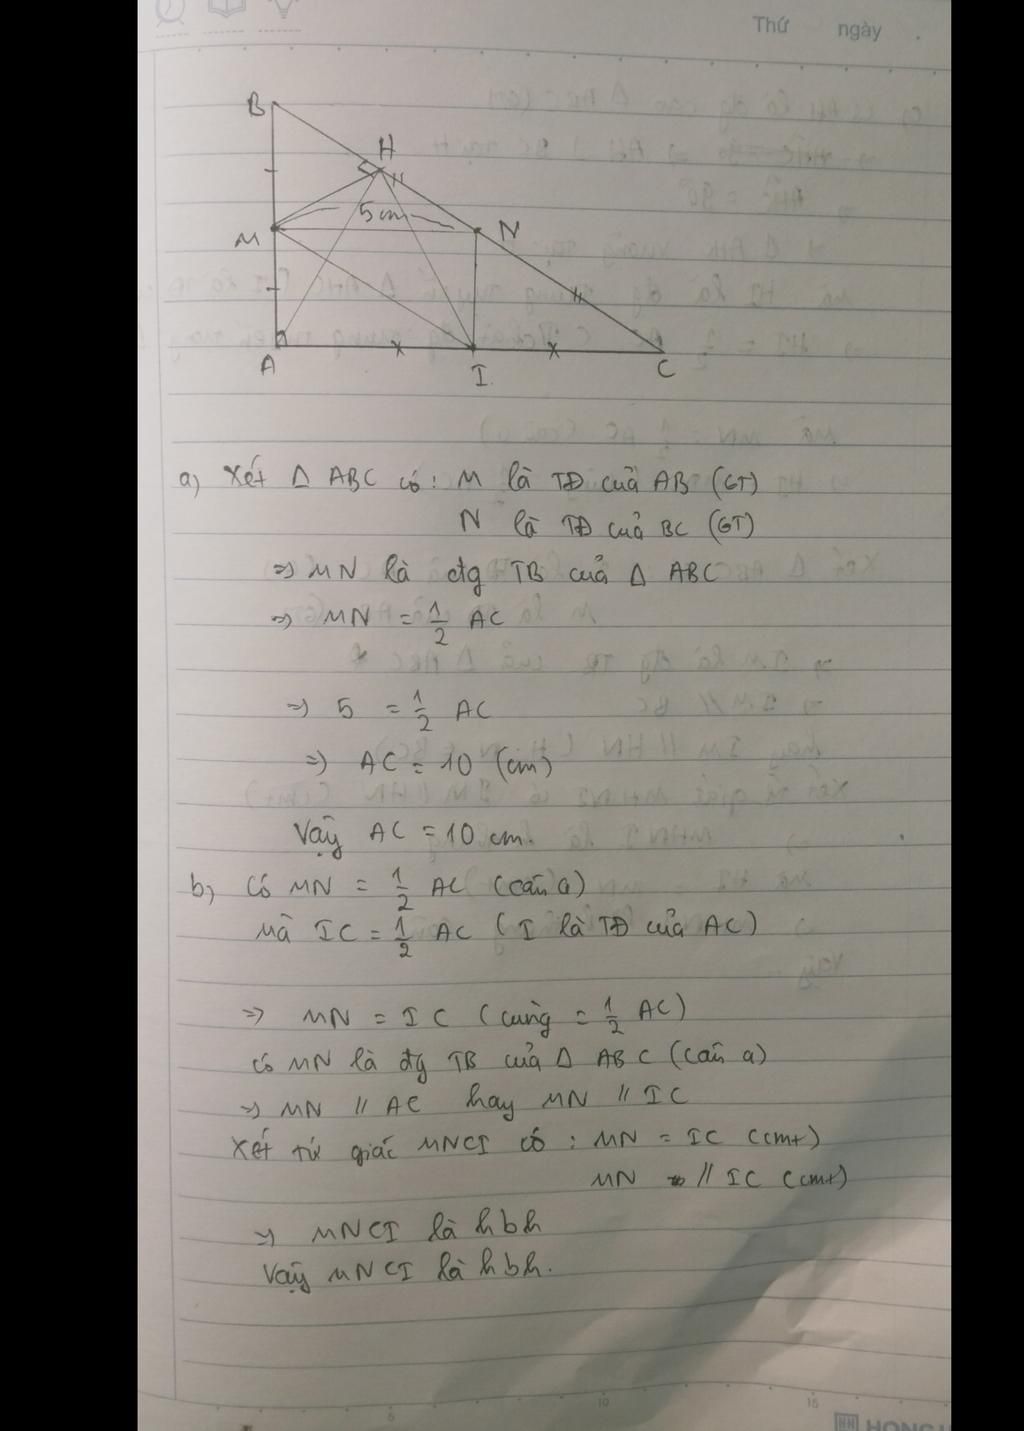 Thứ ngày .
B
H
5 cm
N
M
A
I
C
a) Xét Δ ABC có : M là TĐ của AB (GT)
N là TĐ của BC (GT)
=> MN là đg TB của Δ ABC
=> MN = 1/2 AC
=> 5 = 1/2 AC
=> AC = 10 (cm)
Vậy AC = 10 cm.
b) Có MN = 1/2 AC (câu a)
Mà IC = 1/2 AC ( I là TĐ của AC )
=> MN = IC ( cùng = 1/2 AC )
Có MN là đg TB của Δ ABC (câu a)
=> MN // AC hay MN // IC
Xét tứ giác MNCI có : MN = IC (cmt)
MN // IC (cmt)
=> MNCI là hbh
Vậy MNCI là hbh.
5 10 15
HH HONG H